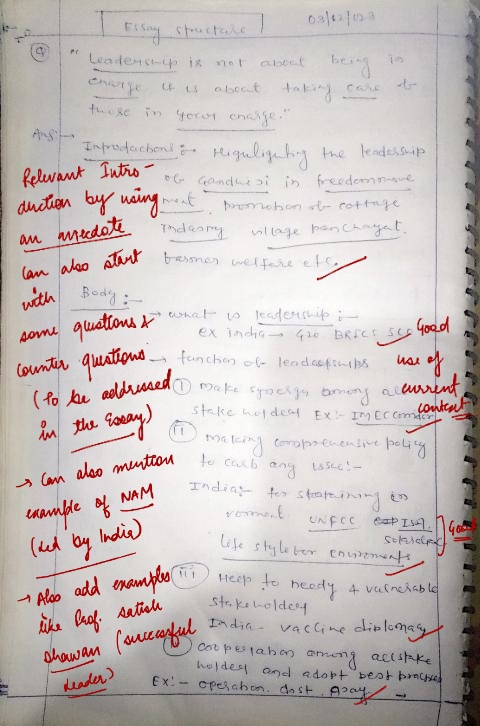 Essay structure
03/12/023
Q
"Leadership is not about being in
charge it is about taking care of
those in your charge."
Ans:→
Introductions:→ Highlighting the leadership
of Gandhi Ji in freedommove
ment, promotion of cottage
Industry village panchayat.
farmer welfare etc.
Relevant Intro-
duction by using
an anecdote
can also start
with
some questions &
counter questions
(To be addressed
in the Essay)
→ Can also mention
example of NAM
(led by India)
→ Also add examples
like Prof. Satish
Dhawan (successful
leader)
Body:→
→ what is leadership:→
ex india → G20 BRICS SCO
Good
use of
current
context
→ function of leaderships
I make synergy among all
stake holder Ex:- IMEC
II making comprehensive policy
to carb any issue:-
India:- for
UNFCC ISA
Good
Life style for enviroments
III Help to needy & vulnerable
stakeholders
India- vaccine diplomacy
cooperation among all stake
holder and adopt best practises
EX:- operation dost,